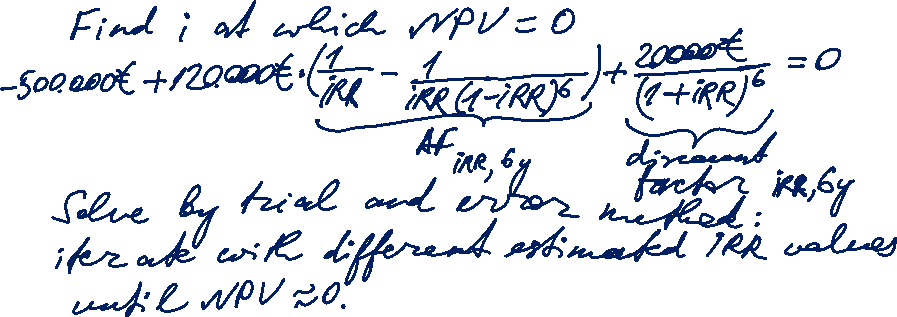 Find i at which NPV = 0
-500.000€ + 120.000€ · (1/IRR - 1/(IRR(1-IRR)^6)) + 20000€/(1+IRR)^6 = 0
AF IRR, 6y discount factor IRR, 6y
Solve by trial and error method:
iterate with different estimated IRR values
until NPV ≈ 0.